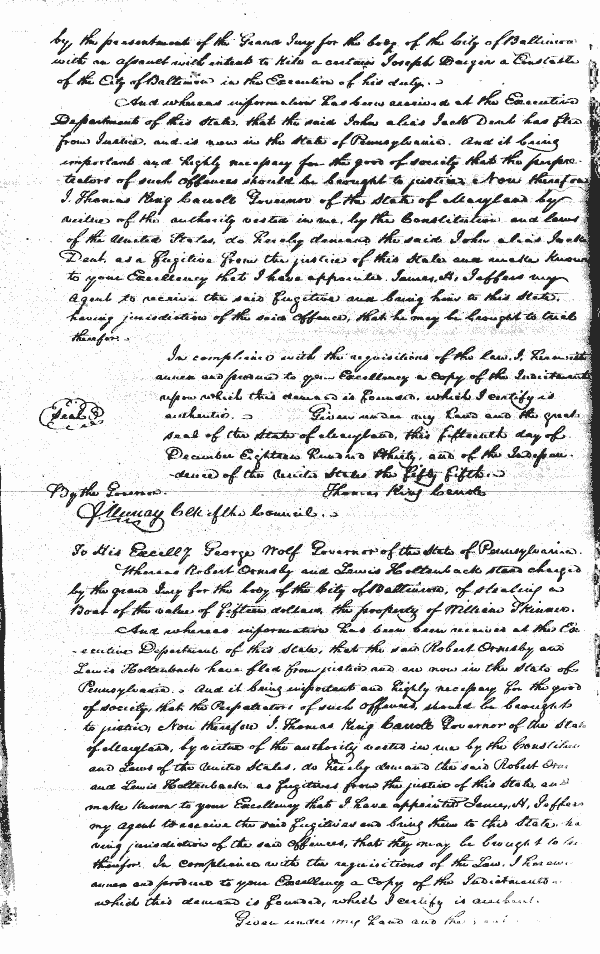 by the presentment of the Grand Jury for the body of the City of Baltimore
with an assault with intent to Kill a certain Joseph Dargin a Constable
of the City of Baltimore in the Execution of his duty.
And whereas information has been received at the Executive
Department of this State, that the said John alias Jack Dent has fled
from Justice, and is now in the State of Pennsylvania. And it being
important and highly necessary for the good of society that the perpe-
trators of such offences should be brought to justice, Now therefore
I. Thomas King Carroll Governor of the State of Maryland by
virtue of the authority vested in me, by the Constitution and laws
of the United States, do hereby demand the said John alias Jack
Dent, as a fugitive from the justice of this State and make known
to your Excellency that I have appointed James, H, Jaffers my
agent to receive the said fugitive and bring him to this State,
having jurisdiction of the said offence, that he may be brought to trial
therefor.
In compliance with the requisitions of the law, I, herewith
annex and produce to your Excellency a copy of the Indictment
upon which this demand is founded, which I certify is
Seal
authentic. Given under my hand and the great
seal of the State of Maryland, this fifteenth day of
December Eighteen hundred & thirty, and of the Indepen-
dence of the United States the fifty fifth.
By the Governor. Thomas King Carroll
Murray Clk of the Council.
To His Excelly George Wolf Governor of the State of Pennsylvania.
Whereas Robert Ormsby and Lewis Holtenback stand charged
by the grand Jury for the body of the City of Baltimore, of stealing a
Boat of the value of fifteen dollars, the property of William Skinner.
And whereas information has been been received at the Ex-
ecutive Department of this State, that the said Robert Ormsby and
Lewis Holtenback have fled from justice and are now in the State of
Pennsylvania. And it being important and highly necessary for the good
of society, that the Perpetrators of such offences, should be brought
to justice, Now therefore I. Thomas King Carroll Governor of the State
of Maryland, by virtue of the authority vested in me by the Constitution
and Laws of the United States, do hereby demand the said Robert Orms
and Lewis Holtenback as fugitives from the justice of this State and
make known to your Excellency that I have appointed James, H, Jaffers
my agent to receive the said fugitives and bring them to this State ha
ving jurisdiction of the said offences, that they may be brought to
therefor. In compliance with the requisitions of the Law, I herew
annex and produce to your Excellency a copy of the Indictment
which this demand is founded, which I certify is authent.
Given under my hand and the